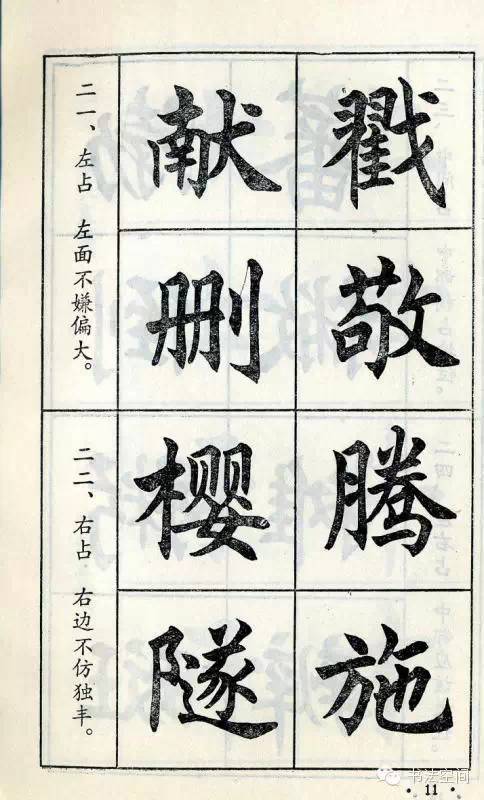 二一、左占 左面不嫌偏大。
戳敬
献删
二二、右占 右边不仿独丰。
腾施
樱隧
书法空间
·11·